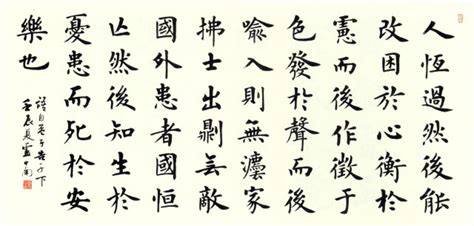 人恆過然後能
改困於心衡於
慮而後作徵于
色發於聲而後
喻入則無灋家
拂士出則無敵
國外患者國恒
亡然後知生於
憂患而死於安
樂也
孟子告子下
壬辰夏盧中南